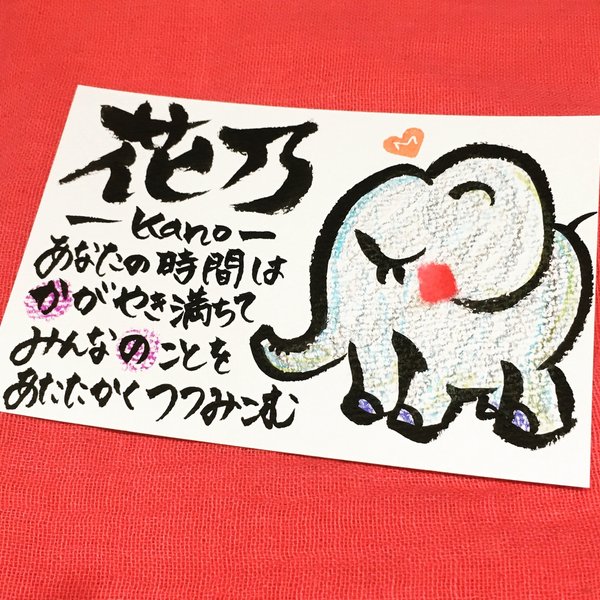 花乃
-Kano-
あなたの時間は
かがやき満ちて
みんなのことを
あたたかくつつみこむ